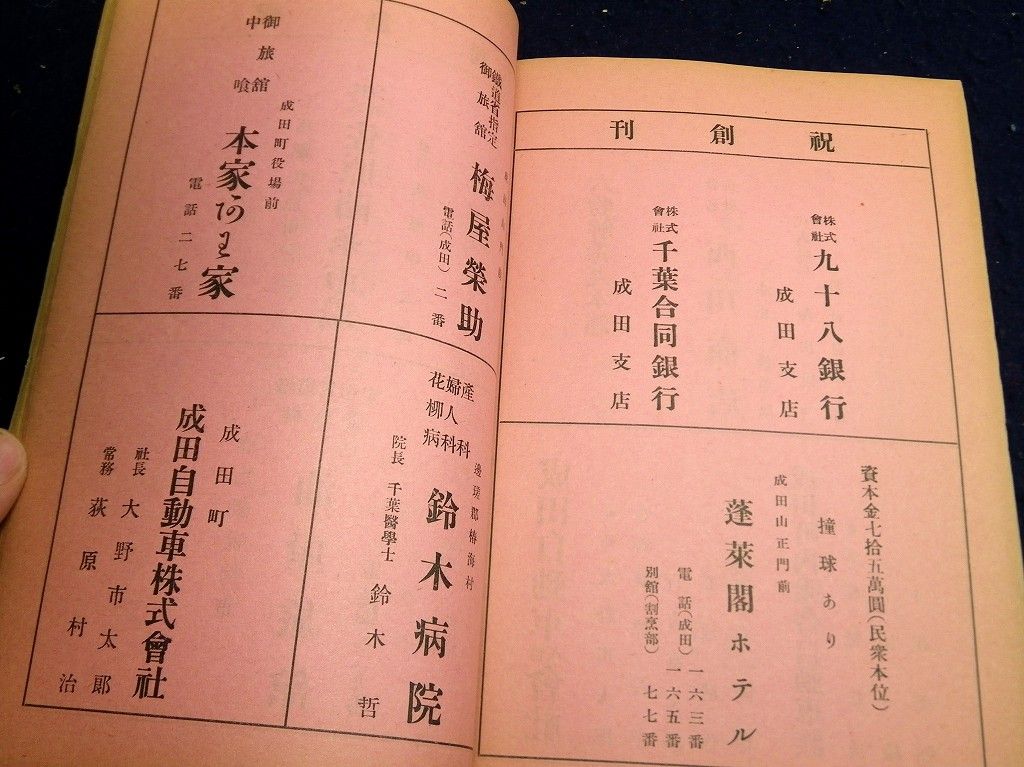 祝創刊
株式會社 九十八銀行
成田支店
株式會社 千葉合同銀行
成田支店
資本金七拾五萬圓(民衆本位)
撞球あり
成田山正門前
蓬萊閣ホテル
電話(成田)一六三番
一六五番
別舘(割烹部)七七番
鐵道省指定
御旅舘
梅屋榮助
電話(成田)二番
御旅舘
中喰
成田町役場前
本家
家
電話二七番
產科
婦人科
花柳病科
邊瑳郡椿海村
鈴木病院
院長 千葉醫學士 鈴木哲
成田町
成田自動車株式會社
社長 大野市太郎
常務 荻原村治